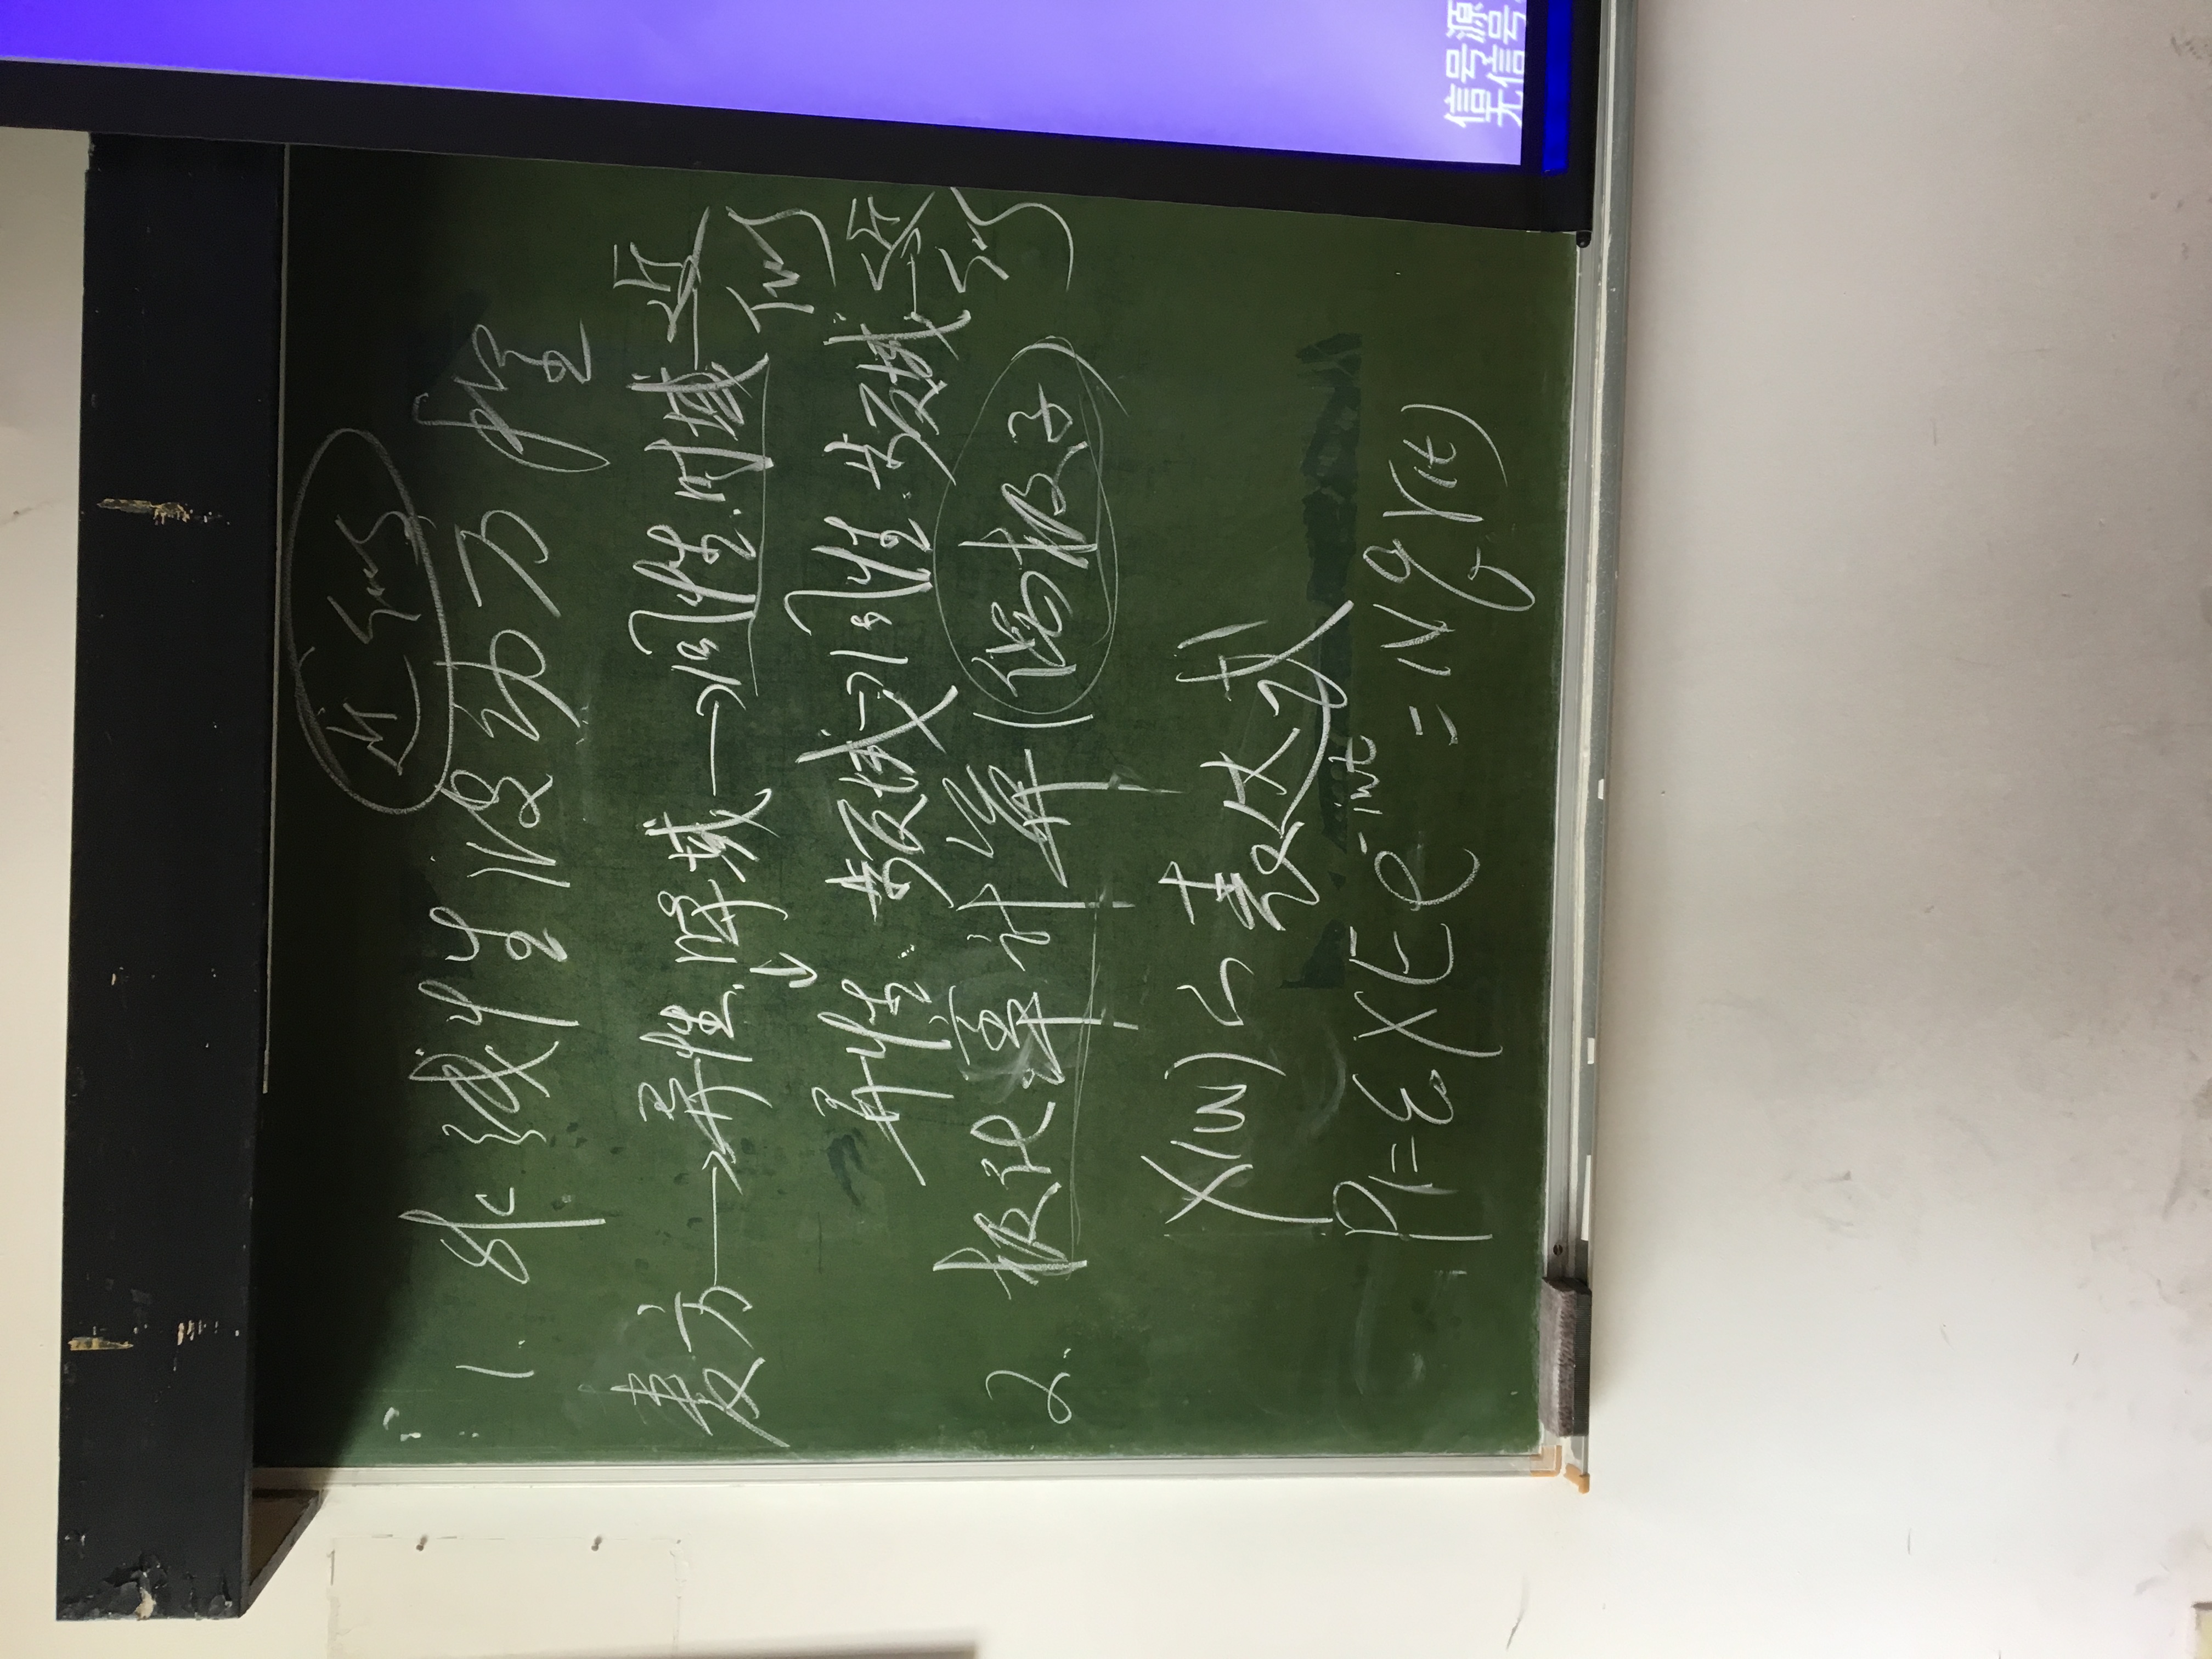 近似
1. 非线性波动方程
麦方→异性.时域→同性.时域→近似
↓
异性.频域→同性.频域→近似
2. 极化率计算(偶极子)
χ(ω)的表达式
P₁=ε₀χEe^{-iωt}=Nqr(t)
信号源
无信号